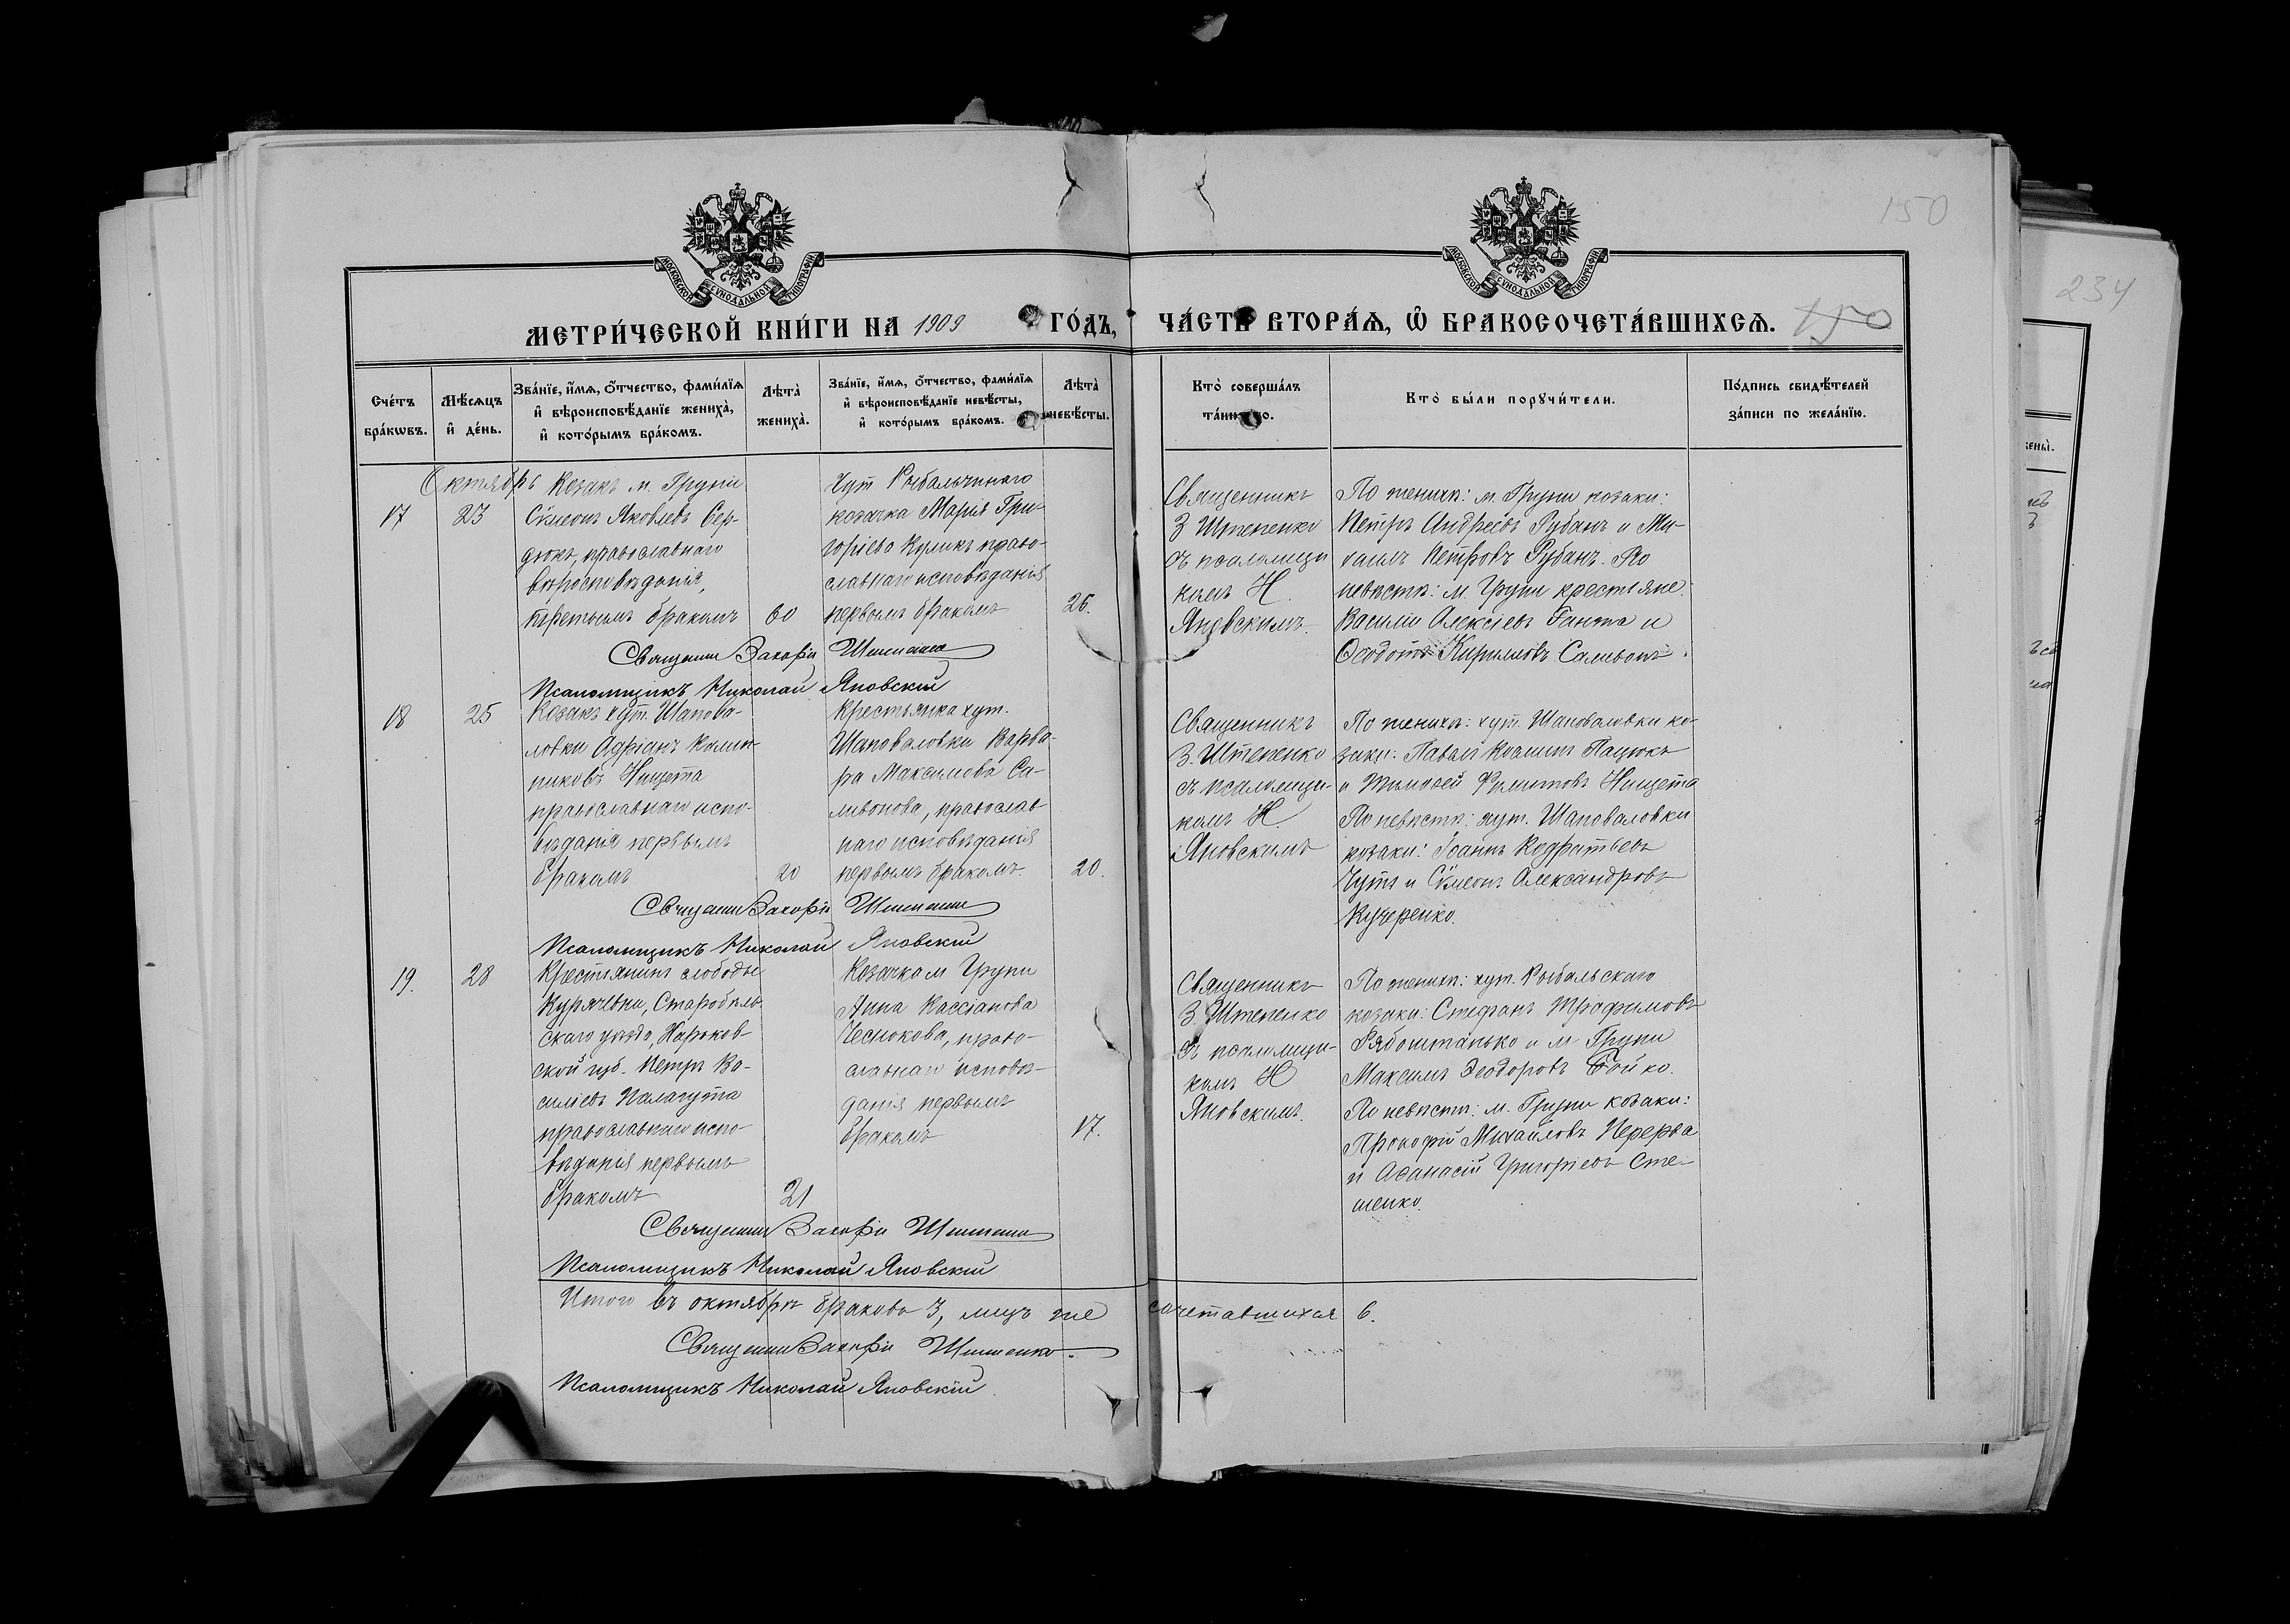 150
234
МОСКОВСКОЙ СѴНОДАЛЬНОЙ ТИПОГРАФІИ
МОСКОВСКОЙ СѴНОДАЛЬНОЙ ТИПОГРАФІИ
МЕТРИ́ЧЕСКОЙ КНИ́ГИ НА 1909 ГО́ДЪ, ЧА́СТЬ ВТОРА́Ѧ, Ѡ҆ БРАКОСОЧЕТА́ВШИХСѦ. 150
Сче́тъ
бра́кѡвъ.
Мѣ́сѧцъ
и҆ де́нь.
Зва́нїе, и҆́мѧ, ѻ҆́тчество, фами́лїѧ
и҆ вѣроисповѣ́данїе жениха̀,
и҆ кото́рымъ бра́комъ.
Лѣта̀
жениха̀.
Зва́нїе, и҆́мѧ, ѻ҆́тчество, фами́лїѧ
и҆ вѣроисповѣ́данїе невѣ́сты,
и҆ кото́рымъ бра́комъ.
Лѣта̀
невѣ́сты.
Кто̀ соверша́лъ
та́инство.
Кто̀ бы́ли порꙋчи́тели.
По́дпись свидѣ́телей
за́писи по жела́нїю.
Октябрь
17
23
Козакъ м. Груни
Сѵмеонъ Яковлевъ Сер-
дюкъ, православнаго
вѣроисповѣданія,
третьимъ бракомъ
60
Хут Рыбальчинаго
козачка Марія Гри-
горіева Куликъ право-
славнаго исповѣданія
первымъ бракомъ
26.
Священникъ
З Штепенко
съ псаломщи
комъ Н.
Яновскимъ.
По женихѣ: м. Груни козаки:
Петръ Андреевъ Рубанъ и Ми-
хаилъ Петровъ Рубанъ. По
невѣстѣ: м. Груни крестьяне:
Василій Алексіевъ Ганжа и
Ѳеодотъ Кирилловъ Саливонъ.
Священник Захарій Штепенко
Псаломщикъ Николай Яновскій
18
25
Козакъ хут. Шапова-
ловки Адріанъ Калин-
никовъ Нищета
православнаго испо-
вѣданія первымъ
бракомъ
20
Крестьянка хут.
Шаповаловки Варва-
ра Максимова Са-
ливонова, православ
наго исповѣданія
первымъ бракомъ.
20.
Священникъ
З. Штепенко
съ псаломщи-
комъ Н.
Яновскимъ
По женихѣ: хут. Шаповаловки ко-
заки: Павелъ Пацюкъ
и Тимофей Нищета
По невѣстѣ: хут. Шаповаловки
козаки: Іоаннъ Кодратьевъ
Чутъ и Сѵмеонъ Александровъ
Кучеренко.
Священник Захарій Штепенко
Псаломщикъ Николай Яновскій
19.
28
Крестьянинъ слободы
Курячевки, Старобѣль
скаго уѣзда, Харьков-
ской губ. Петръ Ва-
силіевъ Палагута
православнаго испо
вѣданія первымъ
бракомъ
21
Козачка м Груни
Анна Кассіанова
Чеснокова, право-
славнаго исповѣ-
данія первымъ
бракомъ
17.
Священникъ
З Штепенко
съ псаломщи-
комъ Н
Яновскимъ.
По женихѣ: хут. Рыбальскаго
козаки: Стефанъ Трофимовъ
Рябоштанько и м Груни
Максимъ Ѳеодоровъ Бойко.
По невѣстѣ: м. Груни козаки:
Прокофій Михайловъ Перерва
и Аѳанасій Григоріевъ Сте-
ценко.
Священник Захарій Штепенко
Псаломщикъ Николай Яновскій
Итого въ октябрѣ браковъ 3, лицъ же сочетавшихся 6.
Священник Захарій Штепенко.
Псаломщикъ Николай Яновскій